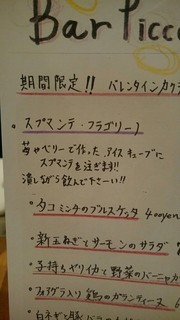 Bar Picc
期間限定!! バレンタインカク
・スプマンテ・フラゴリーノ
苺やベリーで作った、アイスキューブに
スプマンテを注ぎます!!
潰しながら飲んで下さーい!!
・タコミンチのブルスケッタ 400yen
・新玉ねぎとサーモンのサラダ 7
・子持ちヤリイカと野菜のバーニャカ
・フォアグラ入り 鶏のガランティーヌ 6
・白ネギと豚バラ